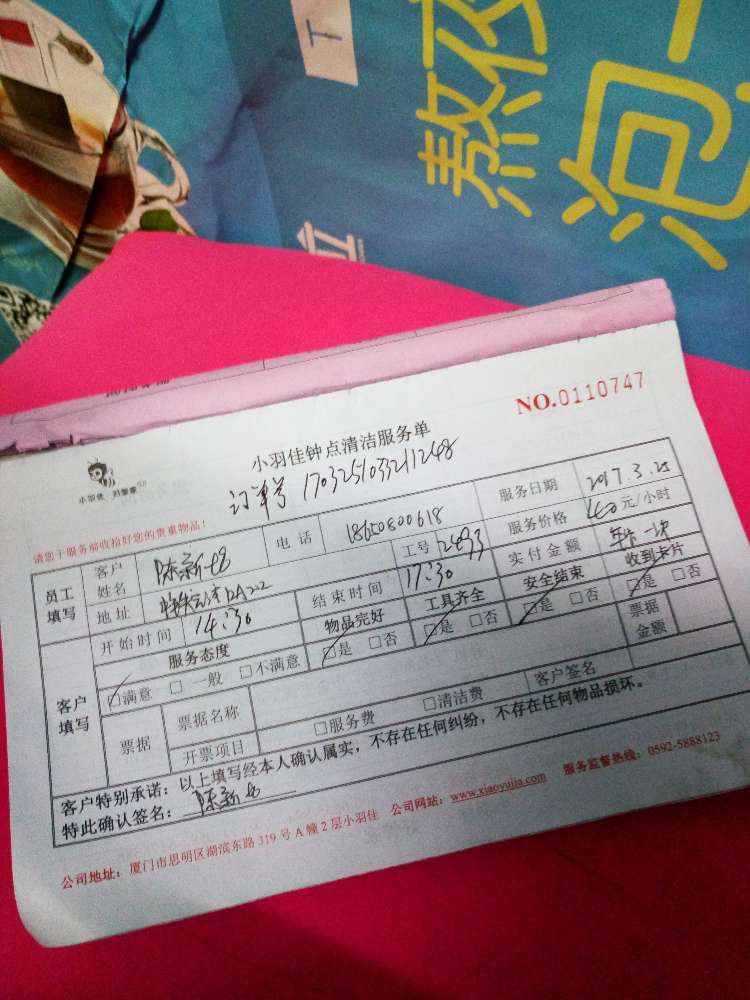 T
熬夜
泡一
NO.0110747
小羽佳钟点清洁服务单
订单号 170325103321248
小羽佳
请您于服务前收拾好您的贵重物品!
员工填写
客户姓名
陈新
电话
18650800618
服务日期
2017.3.25
地址
工号
2493
服务价格
元/小时
开始时间
14:30
结束时间
17:30
实付金额
客户填写
服务态度
物品完好
工具齐全
安全结束
收到卡片
□满意 □一般 □不满意
□是 □否
□是 □否
□是 □否
□是 □否
票据
票据名称
票据金额
开票项目
□服务费 □清洁费
客户签名
客户特别承诺:以上填写经本人确认属实,不存在任何纠纷,不存在任何物品损坏。
特此确认签名:陈新
公司地址:厦门市思明区湖滨东路319号A幢2层小羽佳 公司网站:www.xiaoyujia.com 服务监督热线:0592-5888123